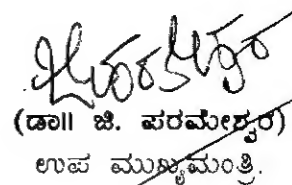 (ಡಾ|| ಜಿ. ಪರಮೇಶ್ವರ)
ಉಪ ಮುಖ್ಯಮಂತ್ರಿ.